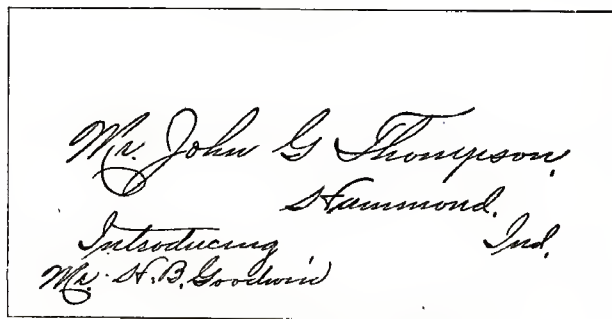 Mr. John G Thompson.
Hammond.
Ind.
Introducing
Mr. H. B. Goodwin